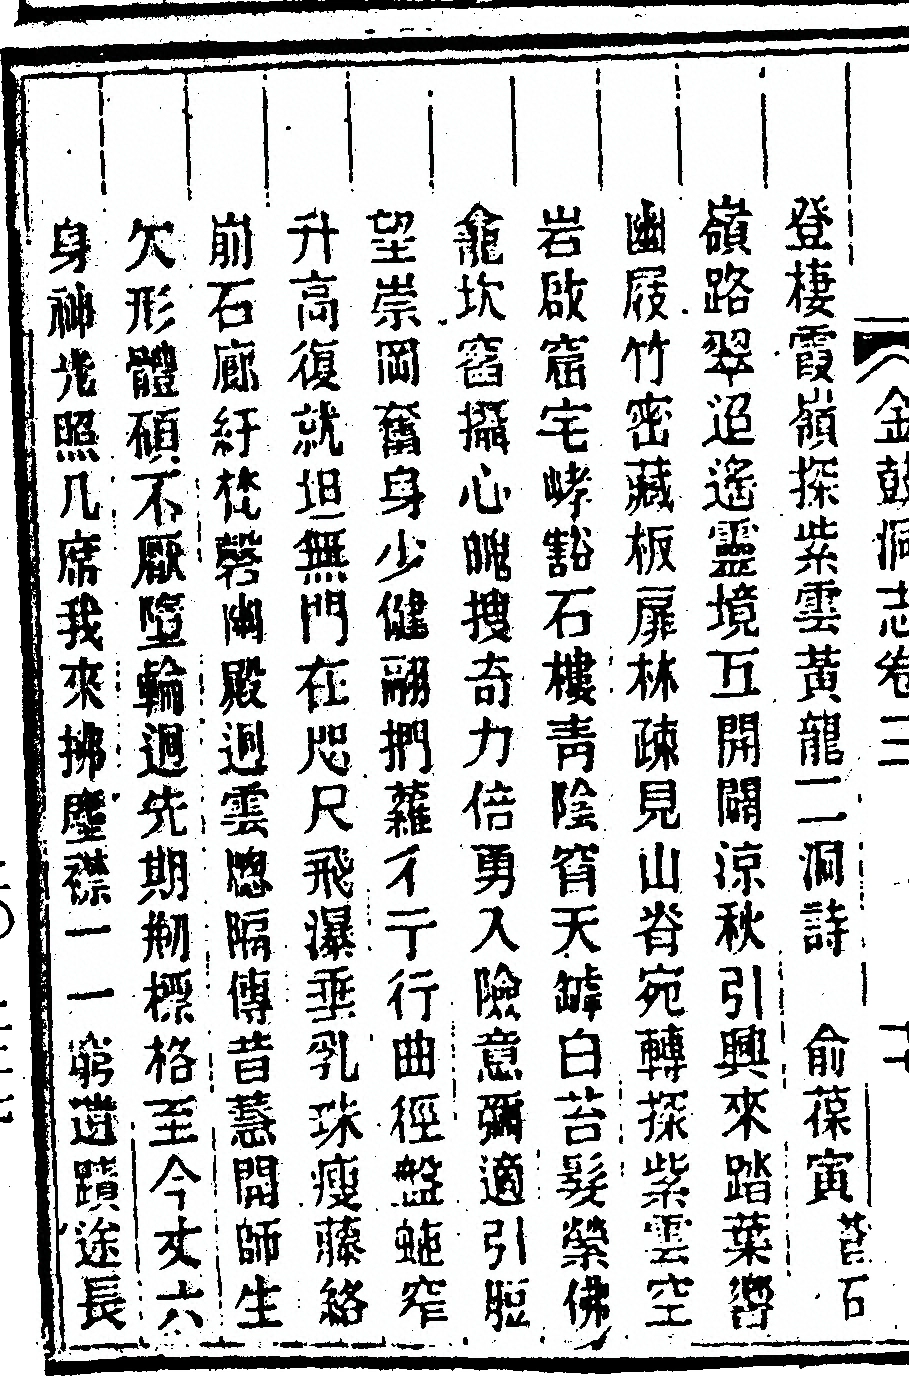 金鼓洞志卷三
登棲霞嶺探紫雲黃龍二洞詩 俞葆寅 苕石
嶺路翠迢遙靈境互開闢涼秋引興來踏葉響
幽屐竹密藏板扉林疎見山脊宛轉探紫雲空
岩啟窟宅哮豁石樓青陰窅天罅白苔髮縈佛
龕坎窞攝心魄搜奇力倍勇入險意彌適引脰
望崇岡奮身少健翮捫蘿彳亍行曲徑盤虵窄
升高復就坦無門在咫尺飛瀑垂乳珠瘦藤絡
崩石廊紆梵磬幽殿迥雲牕隔傳昔慧開師生
欠形體碩不厭墮輪迴先期剏標格至今丈六
身神光照几席我來拂塵襟一一窮遺蹟途長